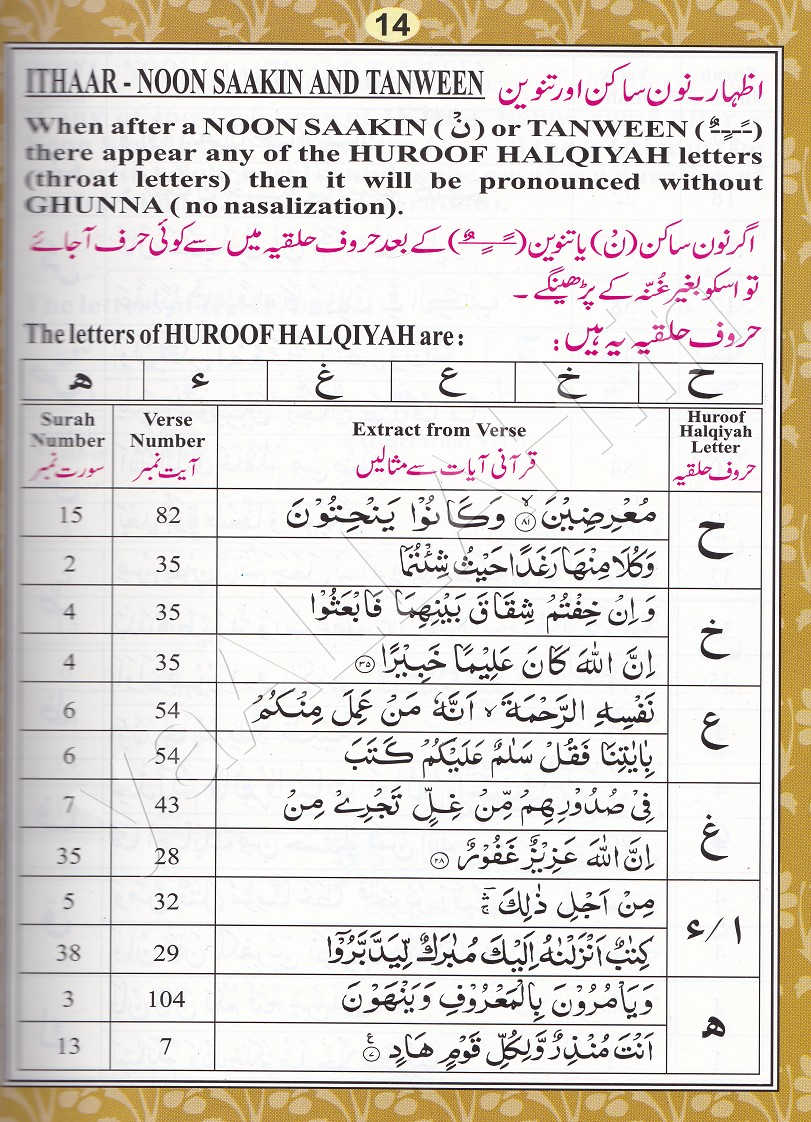 14
ITHAAR - NOON SAAKIN AND TANWEEN اظہار۔ نون ساکن اور تنوین
When after a NOON SAAKIN ( نْ ) or TANWEEN ( ـًـٍـٌ )
there appear any of the HUROOF HALQIYAH letters
(throat letters) then it will be pronounced without
GHUNNA ( no nasalization).
اگر نون ساکن (نْ) یا تنوین (ـًـٍـٌ) کے بعد حروف حلقیہ میں سے کوئی حرف آجائے
تو اسکو بغیر غُنّہ کے پڑھینگے ۔
The letters of HUROOF HALQIYAH are : حروف حلقیہ یہ ہیں :
ح خ ع غ ء ھ
Surah Number Verse Number Extract from Verse Huroof Halqiyah Letter
سورت نمبر آیت نمبر قرآنی آیات سے مثالیں حروف حلقیہ
15 82 مُعْرِضِيْنَ ۙ‏﴿۸۱﴾ وَكَانُوْا يَنْحِتُوْنَ ح
2 35 وَكُلَا مِنْهَا رَغَدًا حَيْثُ شِئْتُمَا
4 35 وَاِنْ خِفْتُمْ شِقَاقَ بَيْنِهِمَا فَابْعَثُوْا خ
4 35 اِنَّ اللّٰهَ كَانَ عَلِيْمًا خَبِيْرًا ﴿۳۵﴾
6 54 نَفْسِهِ الرَّحْمَةَ ۙ اَنَّهٗ مَنْ عَمِلَ مِنْكُمْ ع
6 54 بِاٰيٰتِنَا فَقُلْ سَلٰمٌ عَلَيْكُمْ كَتَبَ
7 43 فِىْ صُدُوْرِهِمْ مِّنْ غِلٍّ تَجْرِىْ مِنْ غ
35 28 اِنَّ اللّٰهَ عَزِيْزٌ غَفُوْرٌ ﴿۲۸﴾
5 32 مِنْ اَجْلِ ذٰلِكَ ۛؔ ا / ء
38 29 كِتٰبٌ اَنْزَلْنٰهُ اِلَيْكَ مُبٰرَكٌ لِّيَدَّبَّرُوْۤا
3 104 وَيَاْمُرُوْنَ بِالْمَعْرُوْفِ وَيَنْهَوْنَ ھ
13 7 اَنْتَ مُنْذِرٌ وَّلِكُلِّ قَوْمٍ هَادٍ ﴿۷﴾